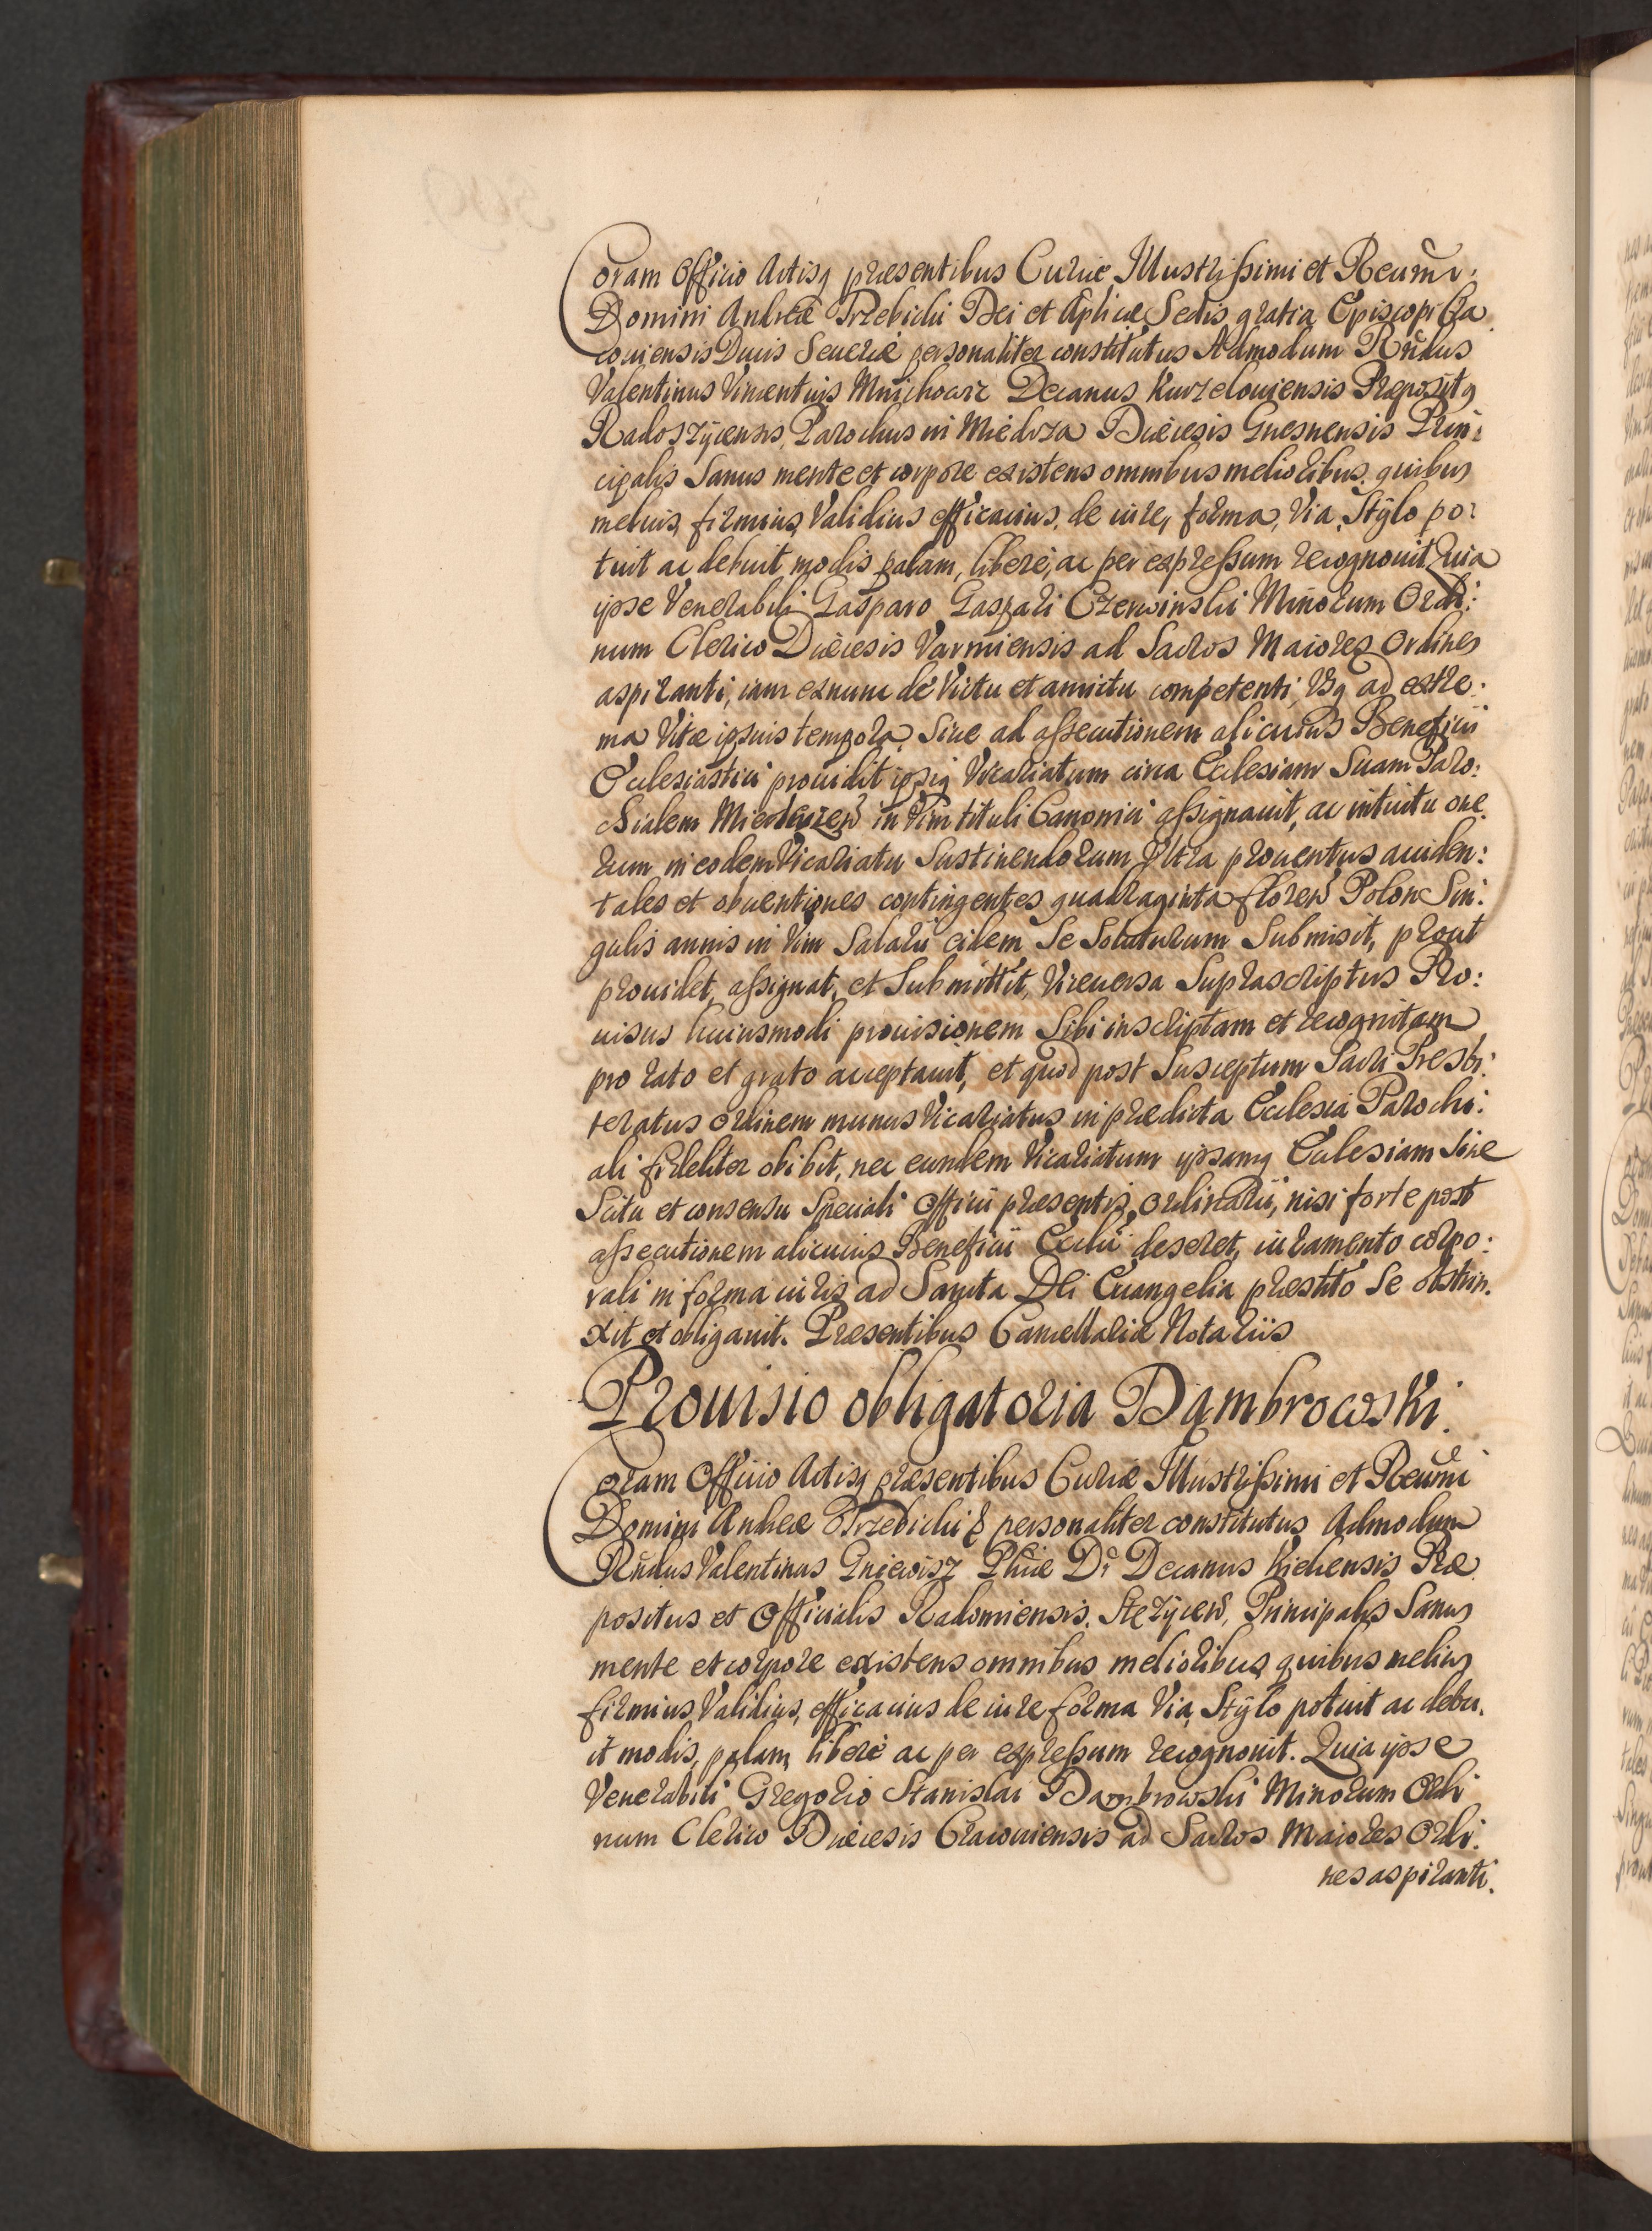 Coram Officio Actisq præsentibus Curiæ Illustrissimi et Reumi:
Domini Andreæ Trzebicki Dei et Aplicæ Sedis gratia Episcopi Cra
couiensis Ducis Seueriæ personaliter constitutus Admodum Rndus
Valentinus Vincentius Mnichowic Decanus Kurzelouiensis Præposit9
Radoszÿcensis, Parochus in Miedza Diæcesis Gnesnensis Prin:
cipalis Sanus mente et corpore existens omnibus melioribus, quibus
melius, firmius, Validius efficacius, de iure, forma, Via, Stÿlo po:
tuit ac debuit modis palam, liberè, ac per expressum recognouit, Quia
ipse Venerabili Gasparo Gaspari Czerwinski Minorum Ordi:
num Clerico Diæcesis Varmiensis ad Sacros Maiores Ordines
aspiranti, iam exnunc de Victu et amictu competenti, Vsq ad extre:
ma Vitæ ipsius tempora, Siue ad assecutionem alicuius Beneficii
Ecclesiastici prouidit ipsiq Vicariatum circa Ecclesiam Suam Paro:
chialem in Vim tituli Canonici assignauit, ac intuitu one
rum in eodem Vicariatu Sustinendorum Vltra prouentus acciden:
tales et obuentiones contingentes quadraginta floren Polon Sin:
gulis annis in Vim Salarii eidem Se Soluturum Submisit, prout
prouidet, assignat, et Submittit, Viceuersa Suprascriptus Pro:
uisus huiusmodi prouisionem Sibi inscriptam et recognitam
pro rato et grato acceptauit, et quod post Susceptum Sacri Presbi:
teratus ordinem munus Vicariatus in prædicta Ecclesia Parochi:
ali fideliter obibit, nec eundem Vicariatum ipsamq Ecclesiam Sine
Scitu et consensu Speciali Officii præsentis, ordinarii, nisi forte post
assecutionem alicuius Beneficii Eccli deseret, iuramento corpo:
rali in forma iuris ad Sancta Dei Euangelia præstito Se obstrin.
xit et obligauit. Præsentibus Cancellariæ Notariis
Prouisio obligatoria Dąmbrowski.
Coram Officio Actisq præsentibus Curiæ Illustrissimi et Reumi
Domini Andreæ Trzebicki & personaliter constitutus Admodum
Rndus Valentinus Gniewisz Phiæ Dr Decanus Kielcensis Præ
positus et Officialis Radomiensis, Stezÿcen, Principalis Sanus
mente et corpore existens omnibus melioribus, quibus melius
firmius, Validius, efficacius de iure forma Via, Stÿlo potuit ac debu.
it modis, palam, liberè ac per expressum recognouit. Quia ipse
Venerabili Gregorio Stanislai Dambrowski Minorum Ordi
num Clerico Diæcesis Cracouiensis ad Sacros Maiores Ordi:
nes aspiranti.